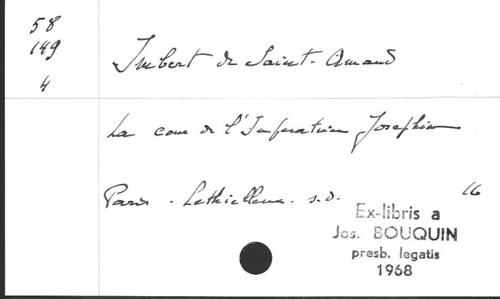 58
149
4
Imbert de Saint-Amand
La cour de l'Impératrice Josephine
Paris - Lethielleux. s.d. 16
Ex-libris a
Jos. BOUQUIN
presb. legatis
1968